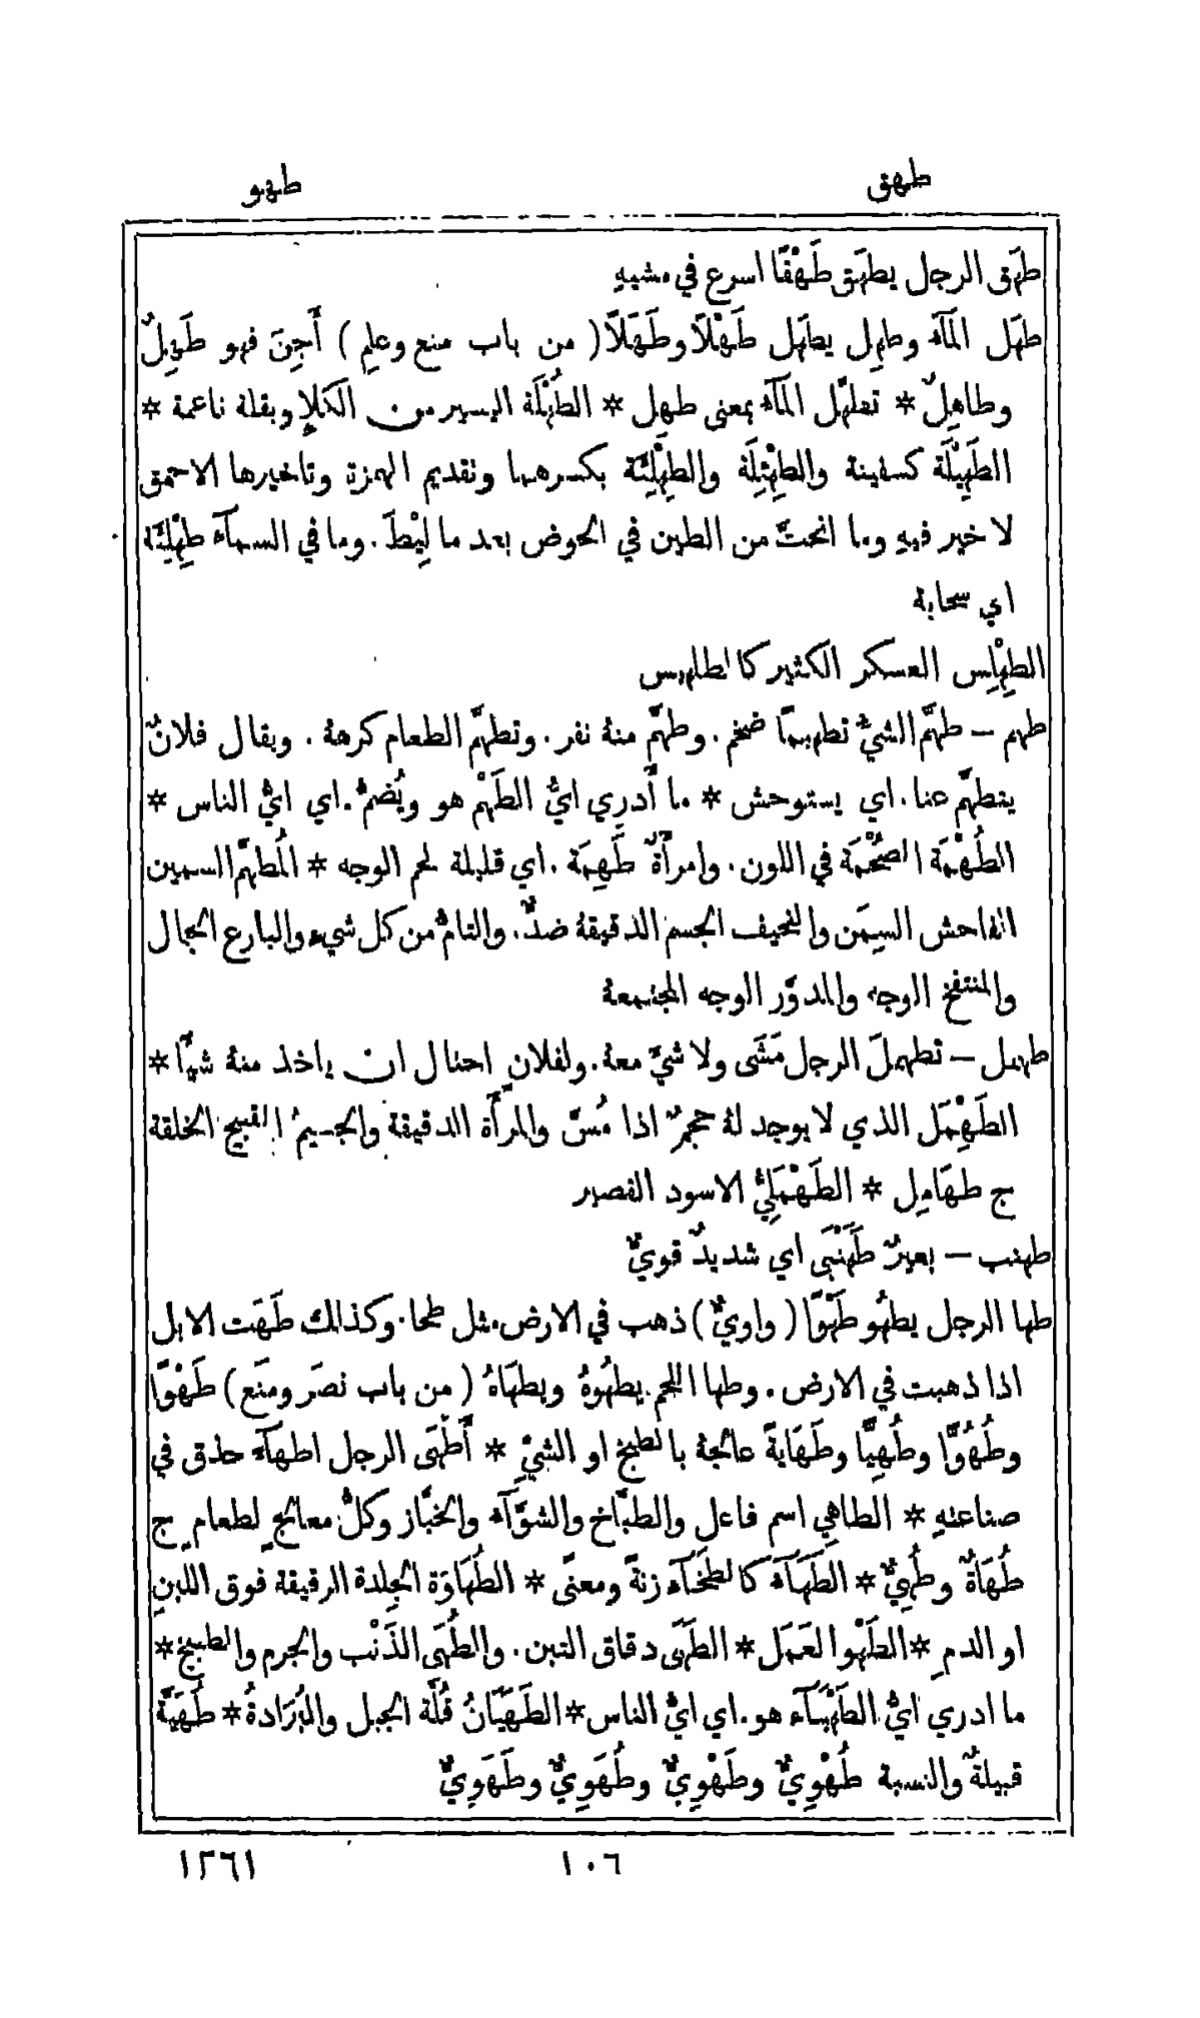 طهق
طهو
طهَق الرجل يطهَق طَهْقًا اسرع في مشيهِ
طهَل المَآءُ وطهِل يطهَل طَهْلًا وطَهَلًا ( من باب منع وعلِم ) أَجِنَ فهو طَهِلٌ
وطاهِلٌ * تطهَّل المآءُ بمعنى طهل * الطُهْلَة اليسير من الكَلإِ وبقلة ناعمة *
الطَهِيْلَة كسفينة والطِهْئِلَة والطِهْلِئَة بكسرهما وتقديم الهمزة وتاخيرها الاحمق
لا خير فيهِ وما انحتَّ من الطين في الحوض بعد ما لِيْطَ . وما في السمآءِ طِهْلِئَة
اي سحابة
الطِهْلِس العسكر الكثير كالطلهيس
طهم – طهَّم الشيُّ تطهيمًا ضخم . وطهَّم منهُ نفر . وتطهَّم الطعام كرههُ . ويقال فلانٌ
يتطهَّم عنا . اي يستوحش * ما أَدرِي ايُّ الطَهْم هو ويُضمُّ . اي ايُّ الناس *
الطُهْمَة الصُحْمَة في اللون . وامرأَةٌ طَهِمَة . اي قليلة لحم الوجه * المُطهَّم السمين
الفاحش السِمَن والنحيف الجسم الدقيقهُ ضدٌّ . والتامُّ من كل شيءٍ والبارع الجمال
والمنتفخ الوجه والمدوَّر الوجه المجتمعهُ
طهمل – تطهملَ الرجل مَشَى ولا شيَّ معهُ . ولفلانٍ احتال ان ياخذ منهُ شيًّا *
الطَهْمَل الذي لا يوجد لهُ حجمٌ اذا مُسَّ والمرأَة الدقيقة والجسيمُ القبيح الخلقة
ج طهَامِل * الطَهْمَلِيُّ الاسود القصير
طهنب – بعيرٌ طَهَنْبَى اي شديدٌ قويٌّ
طها الرجل يطهُو طَهْوًا ( واويٌّ ) ذهب في الارض مثل طحا . وكذالك طَهَت الابل
اذا ذهبت في الارض . وطها اللحم يطهُوهُ ويطهَاهُ ( من باب نصَر ومنَع ) طَهْوًا
وطُهُوًّا وطُهِيًّا وطَهَايةً عالجهُ بالطبخ او الشيِّ * أَطْهَى الرجل اطهآءً حذق في
صناعتهِ * الطاهِي اسم فاعل والطبَّاخ والشوَّآءُ والخبَّاز وكلُّ معالجٍ لطعامٍ ج
طُهَاةٌ وطُهِيٌّ * الطَهَآءُ كالطخَآءِ زنةً ومعنًى * الطُهَاوَة الجِلدة الرقيقة فوق اللبنِ
او الدمِ * الطَهْو العَمَل * الطَهَى دقاق التبن . والطُهَى الذَنْب والجرم والطبيخ *
ما ادري ايُّ الطَهْيَآءِ هو . اي ايُّ الناس * الطَهَيَانُ قُلَّة الجبل والبُرَادةُ * طُهَيَّة
قبيلةٌ والنسبة طُهْوِيٌّ وطَهْوِيٌّ وطُهَوِيٌّ وطَهَوِيٌّ
١٠٦
١٢٦١